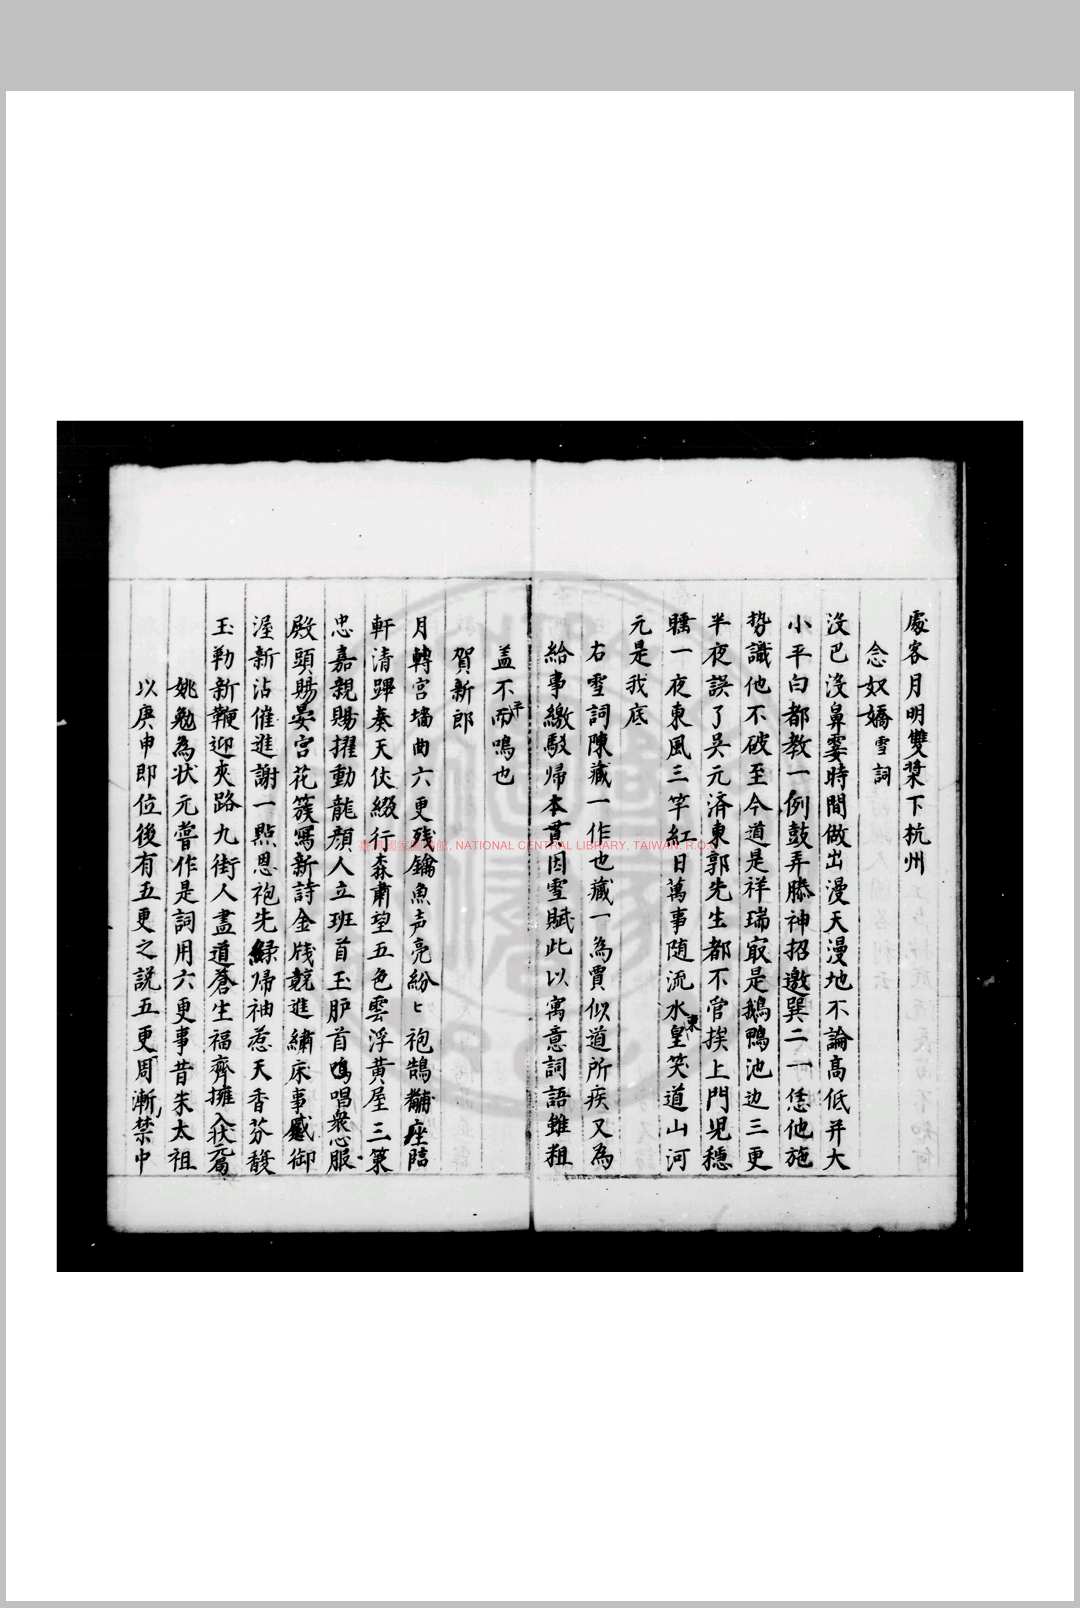 處客月明雙槳下杭州
念奴嬌雪詞
沒巴沒鼻霎時間做出漫天漫地不論高低并大
小平白都教一例鼓弄滕神招邀巽二一恁他施
势識他不破至今道是祥瑞㝡是鵝鴨池边三更
半夜誤了吳元済東郭先生都不管挨上門児穩
睡一夜東風三竿紅日萬事随流水東皇笑道山河
元是我底
右雪詞陳藏一作也藏一為賈似道所疾又為
給事繳駁帰本貫因雪賦此以寓意詞語雖粗
盖不平而鳴也
賀新郎
月轉宮墻曲六更残鑰魚声亮紛〻袍鵠黼座臨
軒清蹕奏天伎綴行森肅望五色雲浮黃屋三策
忠嘉親賜擢動龍顏人立班首玉胪首鳴唱衆心服
殿頭賜晏宮花簇寫新詩金牋競進繡床事感御
渥新沾催進謝一㸃恩袍先綠帰袖惹天香芬馥
玉勒新鞭迎夾路九街人盡道蒼生福齊擁入状元
姚勉為状元嘗作是詞用六更事昔朱太祖
以庚申即位後有五更之説五更周漸禁中
臺灣國家圖書館, NATIONAL CENTRAL LIBRARY, TAIWAN, R.O.C